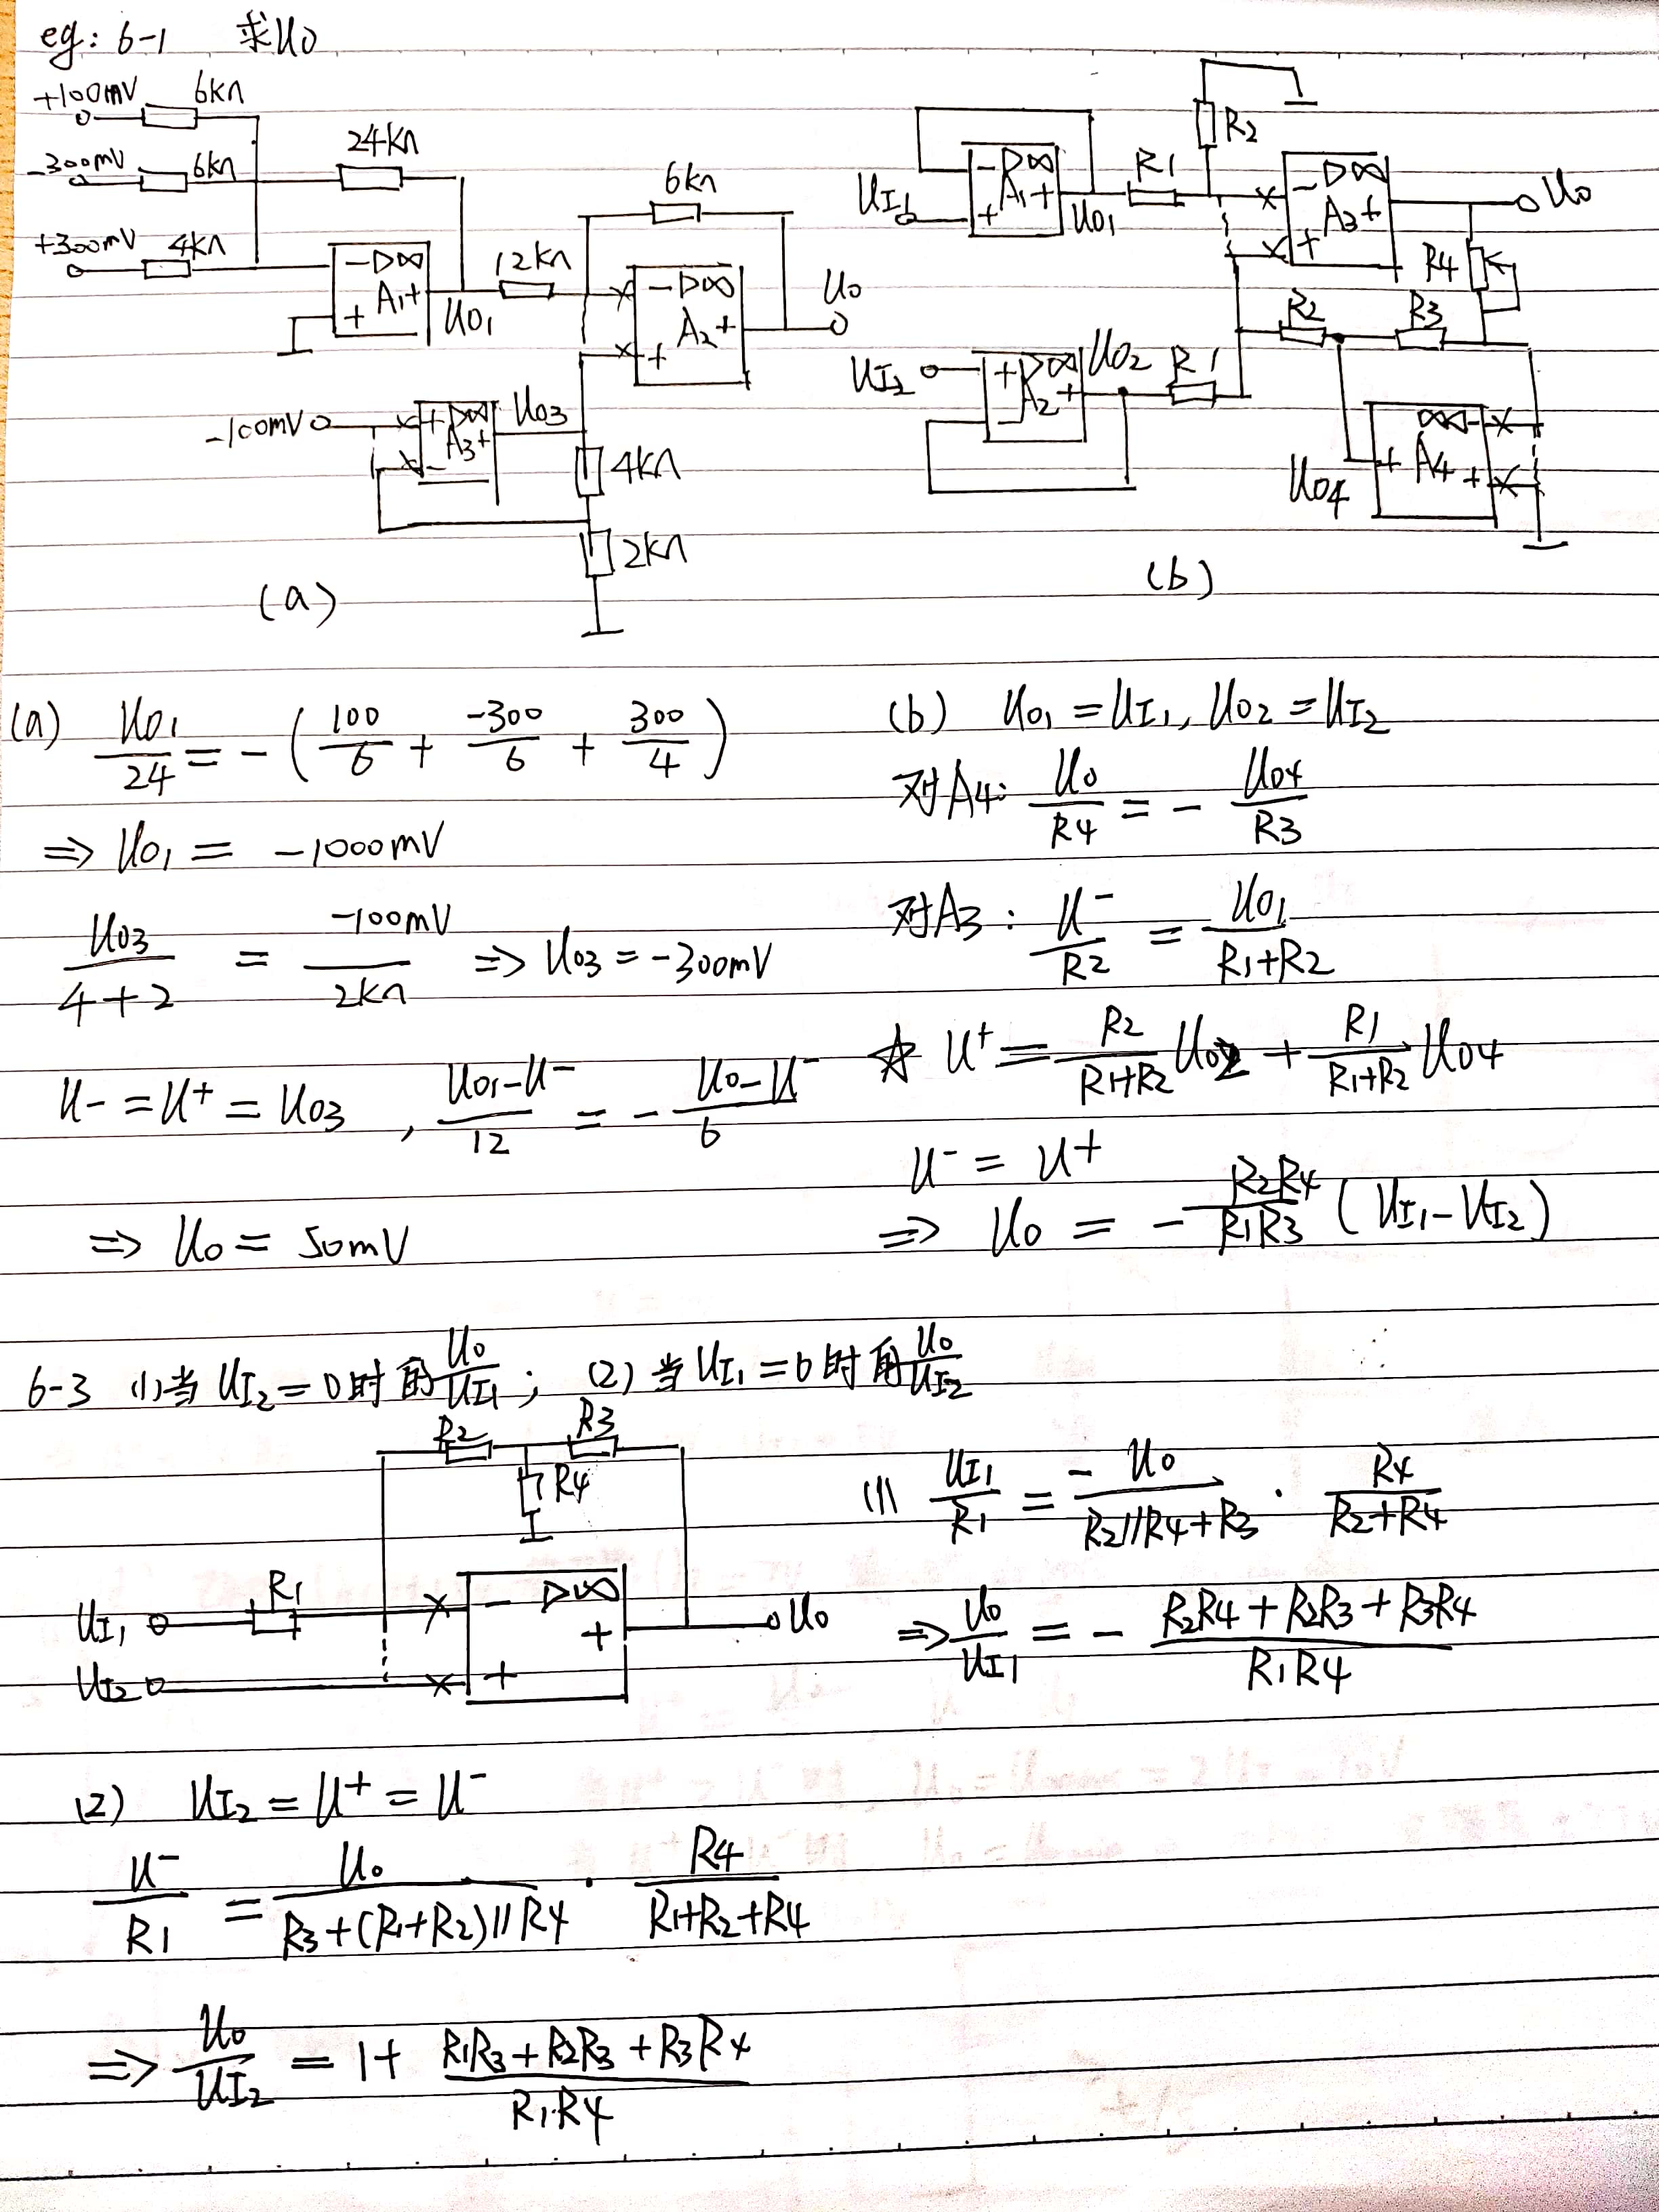 eg: 6-1 求U0
+100mV 6kΩ
-300mV 6kΩ 24kΩ
+300mV 4kΩ
- ▷∞
+ A1 +
U01 12kΩ 6kΩ
- ▷∞
+ A2 +
U0
-100mV
+ ▷∞
- A3 +
U03
4kΩ
2kΩ
(a)
UI1
- ▷∞
+ A1 +
U01 R1 R2
- ▷∞
+ A3 +
U0
R4
R2 R3
UI2
+ ▷∞
- A2 +
U02 R1
U04
∞▷ -
+ A4 +
(b)
(a) U01/24 = -(100/6 + -300/6 + 300/4)
⇒ U01 = -1000mV
U03/(4+2) = -100mV/2kΩ ⇒ U03 = -300mV
U- = U+ = U03 , (U01-U-)/12 = -(U0-U-)/6
⇒ U0 = 50mV
(b) U01 = UI1, U02 = UI2
对A4: U0/R4 = - U04/R3
对A3: U-/R2 = U01/(R1+R2)
☆ U+ = R2/(R1+R2) U02 + R1/(R1+R2) U04
U- = U+
⇒ U0 = - R2R4/R1R3 (UI1-UI2)
6-3 (1)当UI2=0时的U0/UI1; (2)当UI1=0时的U0/UI2
R2 R3
R4
R1
UI1
UI2
- ▷∞
+
+
U0
(1) UI1/R1 = -U0/(R2//R4+R3) · R4/(R2+R4)
⇒ U0/UI1 = - (R2R4+R2R3+R3R4)/R1R4
(2) UI2 = U+ = U-
U-/R1 = U0/(R3+(R1+R2)//R4) · R4/(R1+R2+R4)
⇒ U0/UI2 = 1+ (R1R3+R2R3+R3R4)/R1·R4